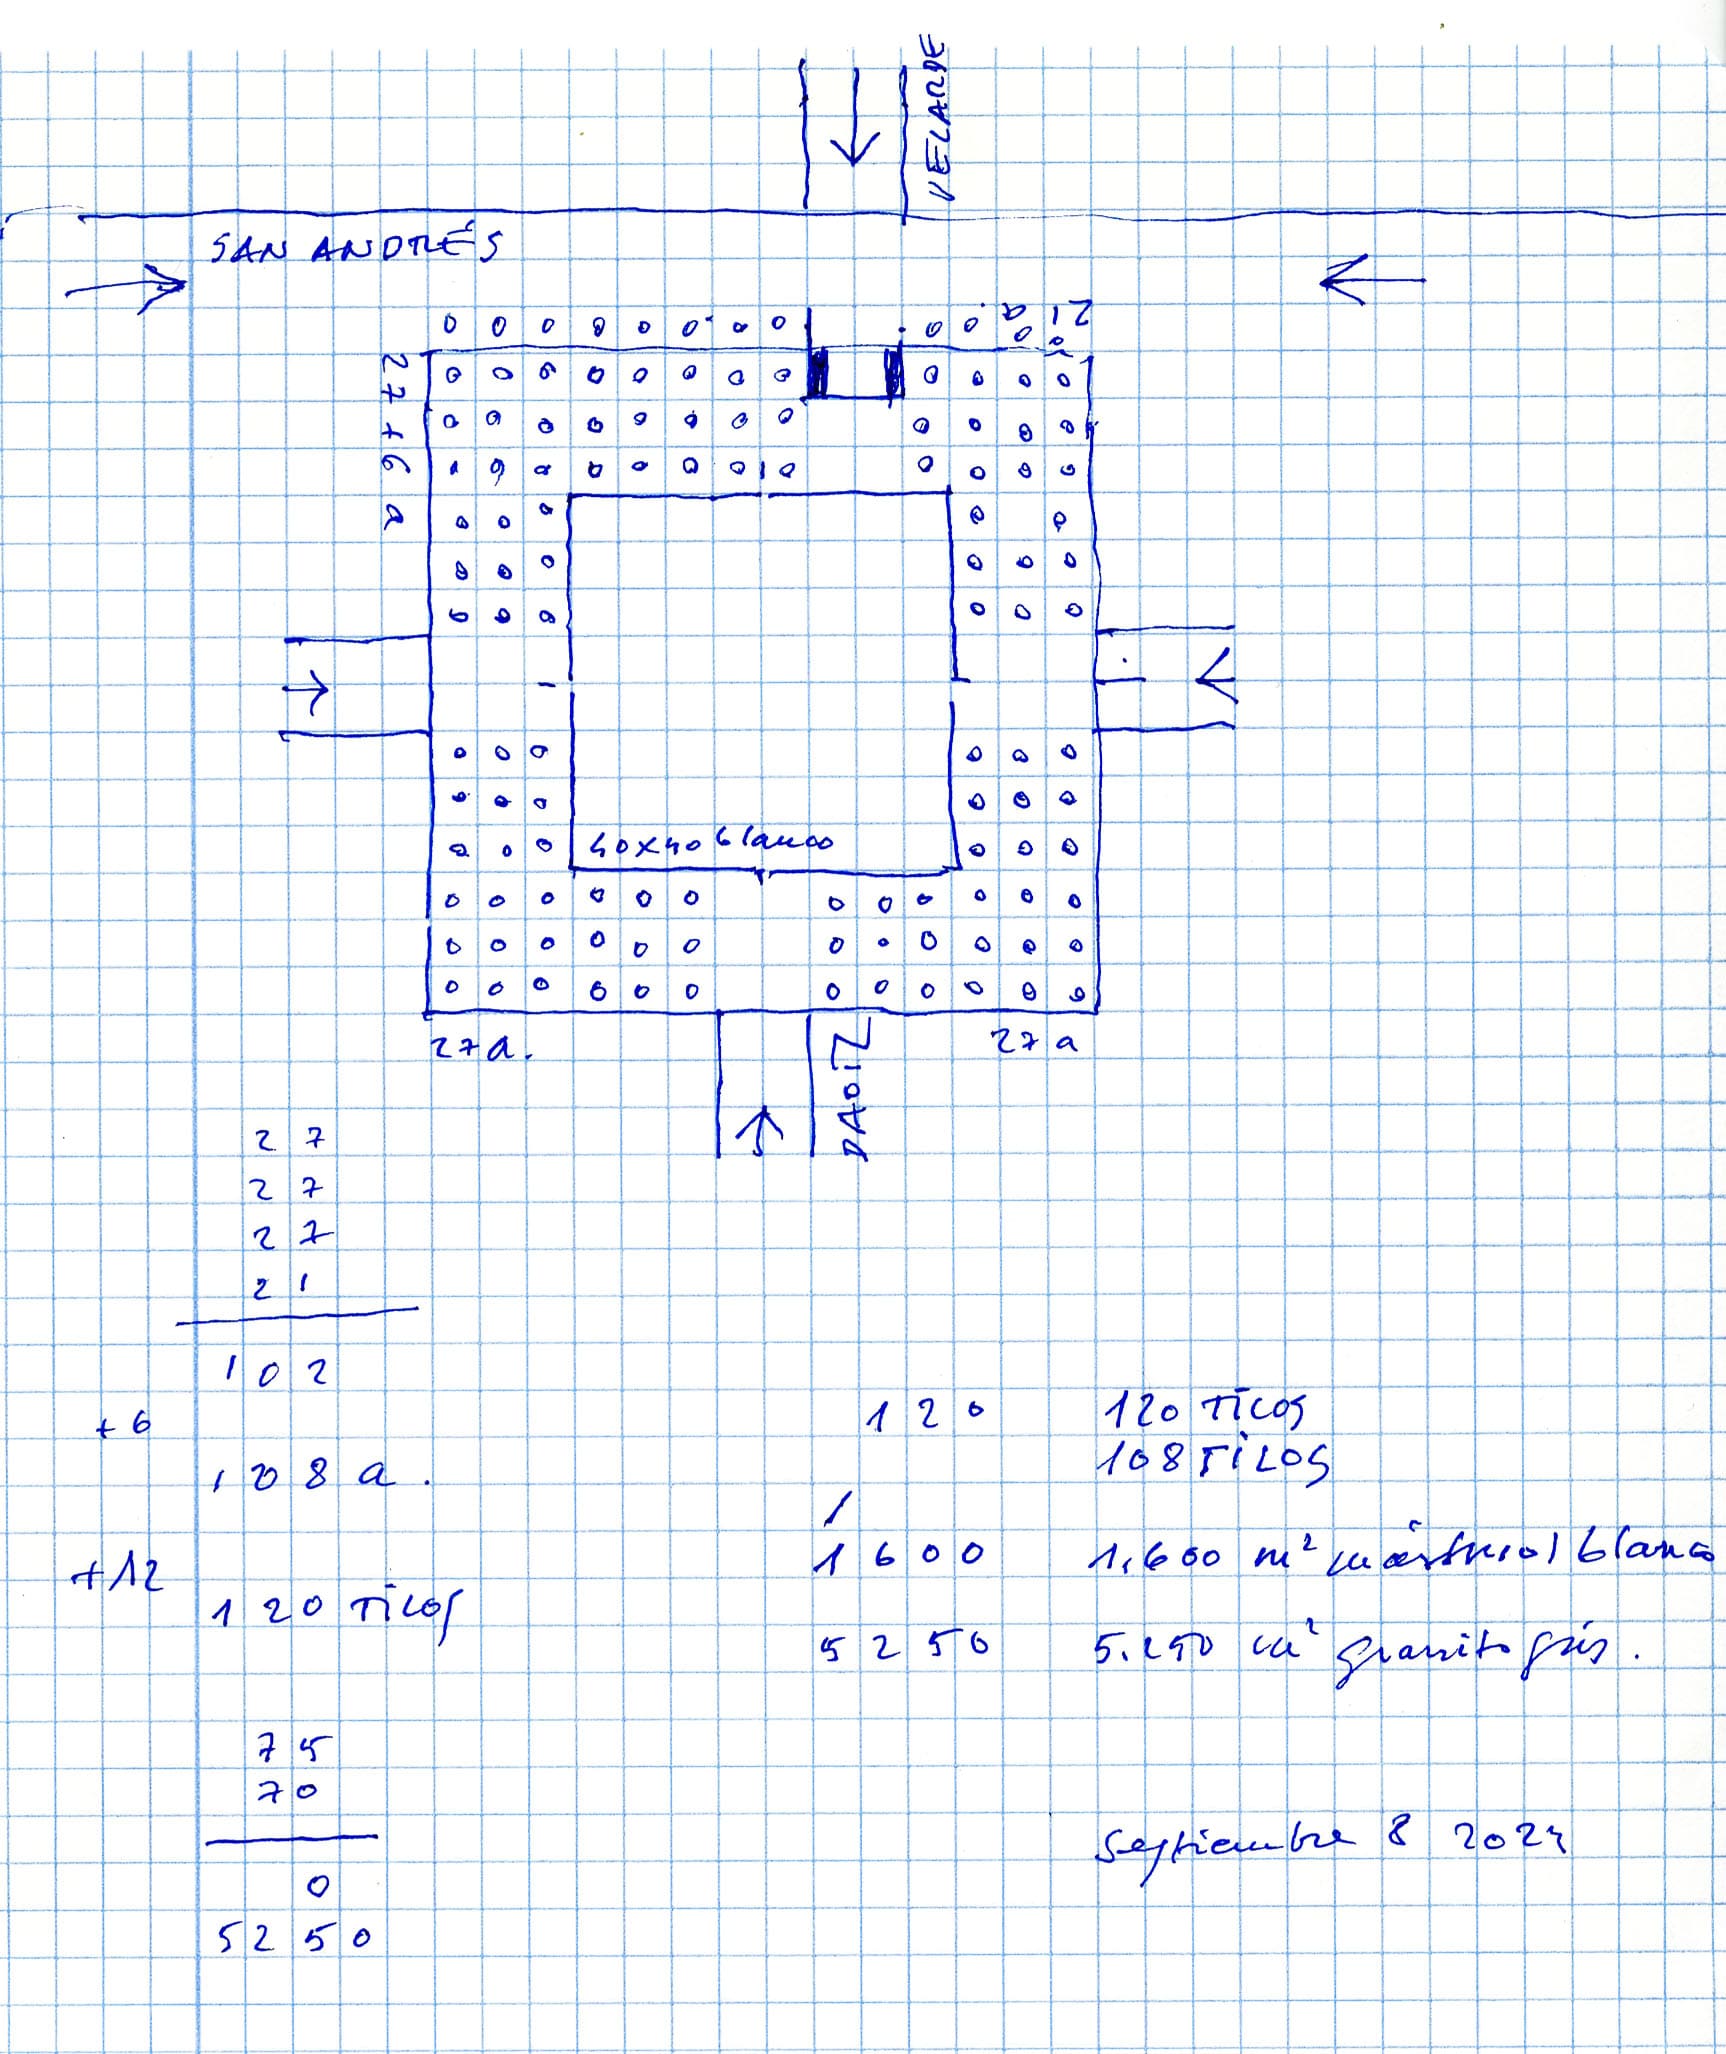 VELARDE
SAN ANDRÉS
21 a
27+6 a
40x40 blanco
27a.
27 a
DAOIZ
27
27
27
21
102
+6
108 a.
+12
120 TILOS
75
70
0
5250
120 120 TILOS
108 TILOS
1600 1.600 m² mármol blanco
5250 5.250 m² granito gris.
Septiembre 8 2024